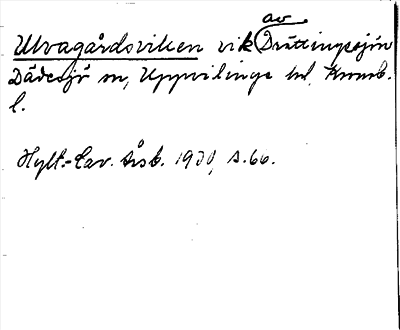 Ulvagårdsviken vik av Drättingesjön
Dädesjö sn, Uppvidinge hd, Kronob.
l.
Hylt.-Cav. Årsb. 1930, s. 66.